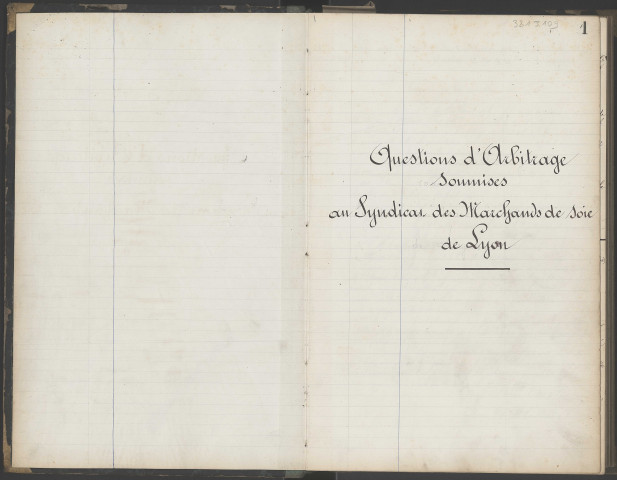 1
Questions d'Arbitrage
soumises
au Syndicat des Marchands de Soie
de Lyon